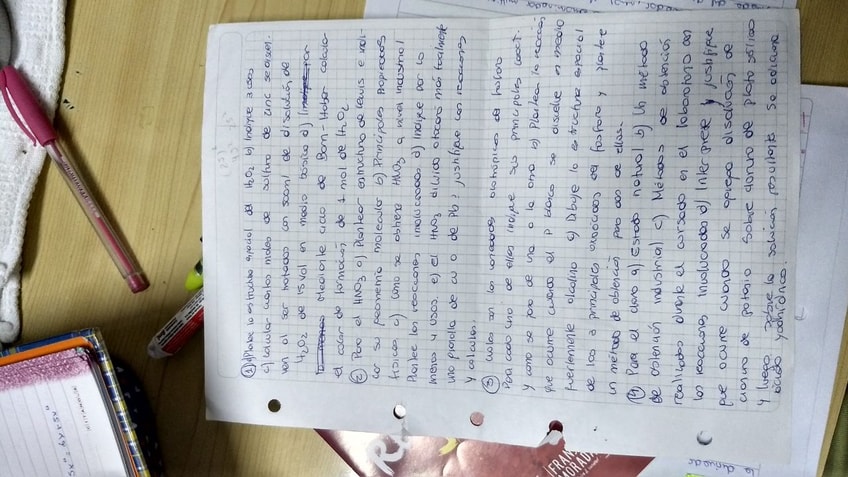 ① a) Dibuje la estructura espacial del H₂O₂ b) Indique 3 usos
c) Calcular cuantos moles de sulfuro de zinc
ran al ser tratados con ml de disolución de
H₂O₂ de 15 vol en medio básico d)
Mediante ciclo de Born-Haber calcular
el calor de formación de 1 mol de H₂O₂
② Para el HNO₃ a) Plantear estructura de Lewis e indi-
car su geometría molecular b) Principales propiedades
físicas c) como se obtiene HNO₃ a nivel industrial
Plantee las reacciones involucradas d) Indique por lo
menos 4 usos. e) El HNO₃ diluido atacara más facilmente
una placa de Cu o de Pb? Justifique con reacciones
y calculos.
③ Cuales son las variedades alotrópicas del fosforo
Para cada una de ellas indique sus principales caract.
y como se pasa de una a la otra b) Plantea la reacción
que ocurre cuando el P blanco se disuelve en medio
fuertemente alcalino c) Dibuje la estructura espacial
de los 3 principales oxoácidos del fosforo y plantee
un método de obtención para cada uno de ellos.
④ Para el cloro a) Estado natural b) Un método
de obtención industrial c) Métodos de obtención
realizados durante el cursado en el laboratorio con
las reacciones involucradas d) Interprete y justifique
que ocurre cuando se agrega disolución de
cloruro de potasio sobre cloruro de plata sólido
y luego sobre la solución resultante se adiciona
ácido yodhídrico.
FRAN
MORADA